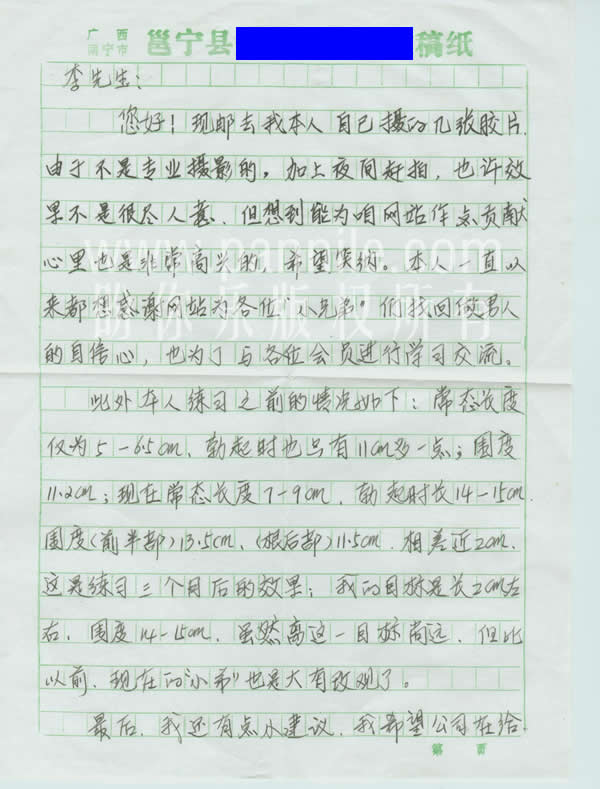 广西
南宁市 邕宁县 稿纸
李先生：
您好！现邮去我本人自己摄的几张胶片.
由于不是专业摄影的，加上夜间赶拍，也许效
果不是很尽人意、但想到能为咱网站作点贡献
心里也是非常高兴的，希望笑纳。本人一直以
来都想感谢网站为各位“小兄弟”们找回做男人
的自信心，也为了与各位会员进行学习交流。
此外本人练习之前的情况如下：常态长度
仅为5-6.5cm、勃起时也只有11cm多一点；围度
11.2cm；现在常态长度7-9cm、勃起时长14-15cm.
围度(前半部)13.5cm、(根后部)11.5cm.相差近2cm.
这是练习三个月后的效果；我的目标是长2cm左
右.围度14-15cm.虽然离这一目标尚远.但比
以前、现在的“小弟”也是大有改观了。
最后.我还有点小建议.我希望公司在给
www.parpile.com
盼你乐版权所有
第 页